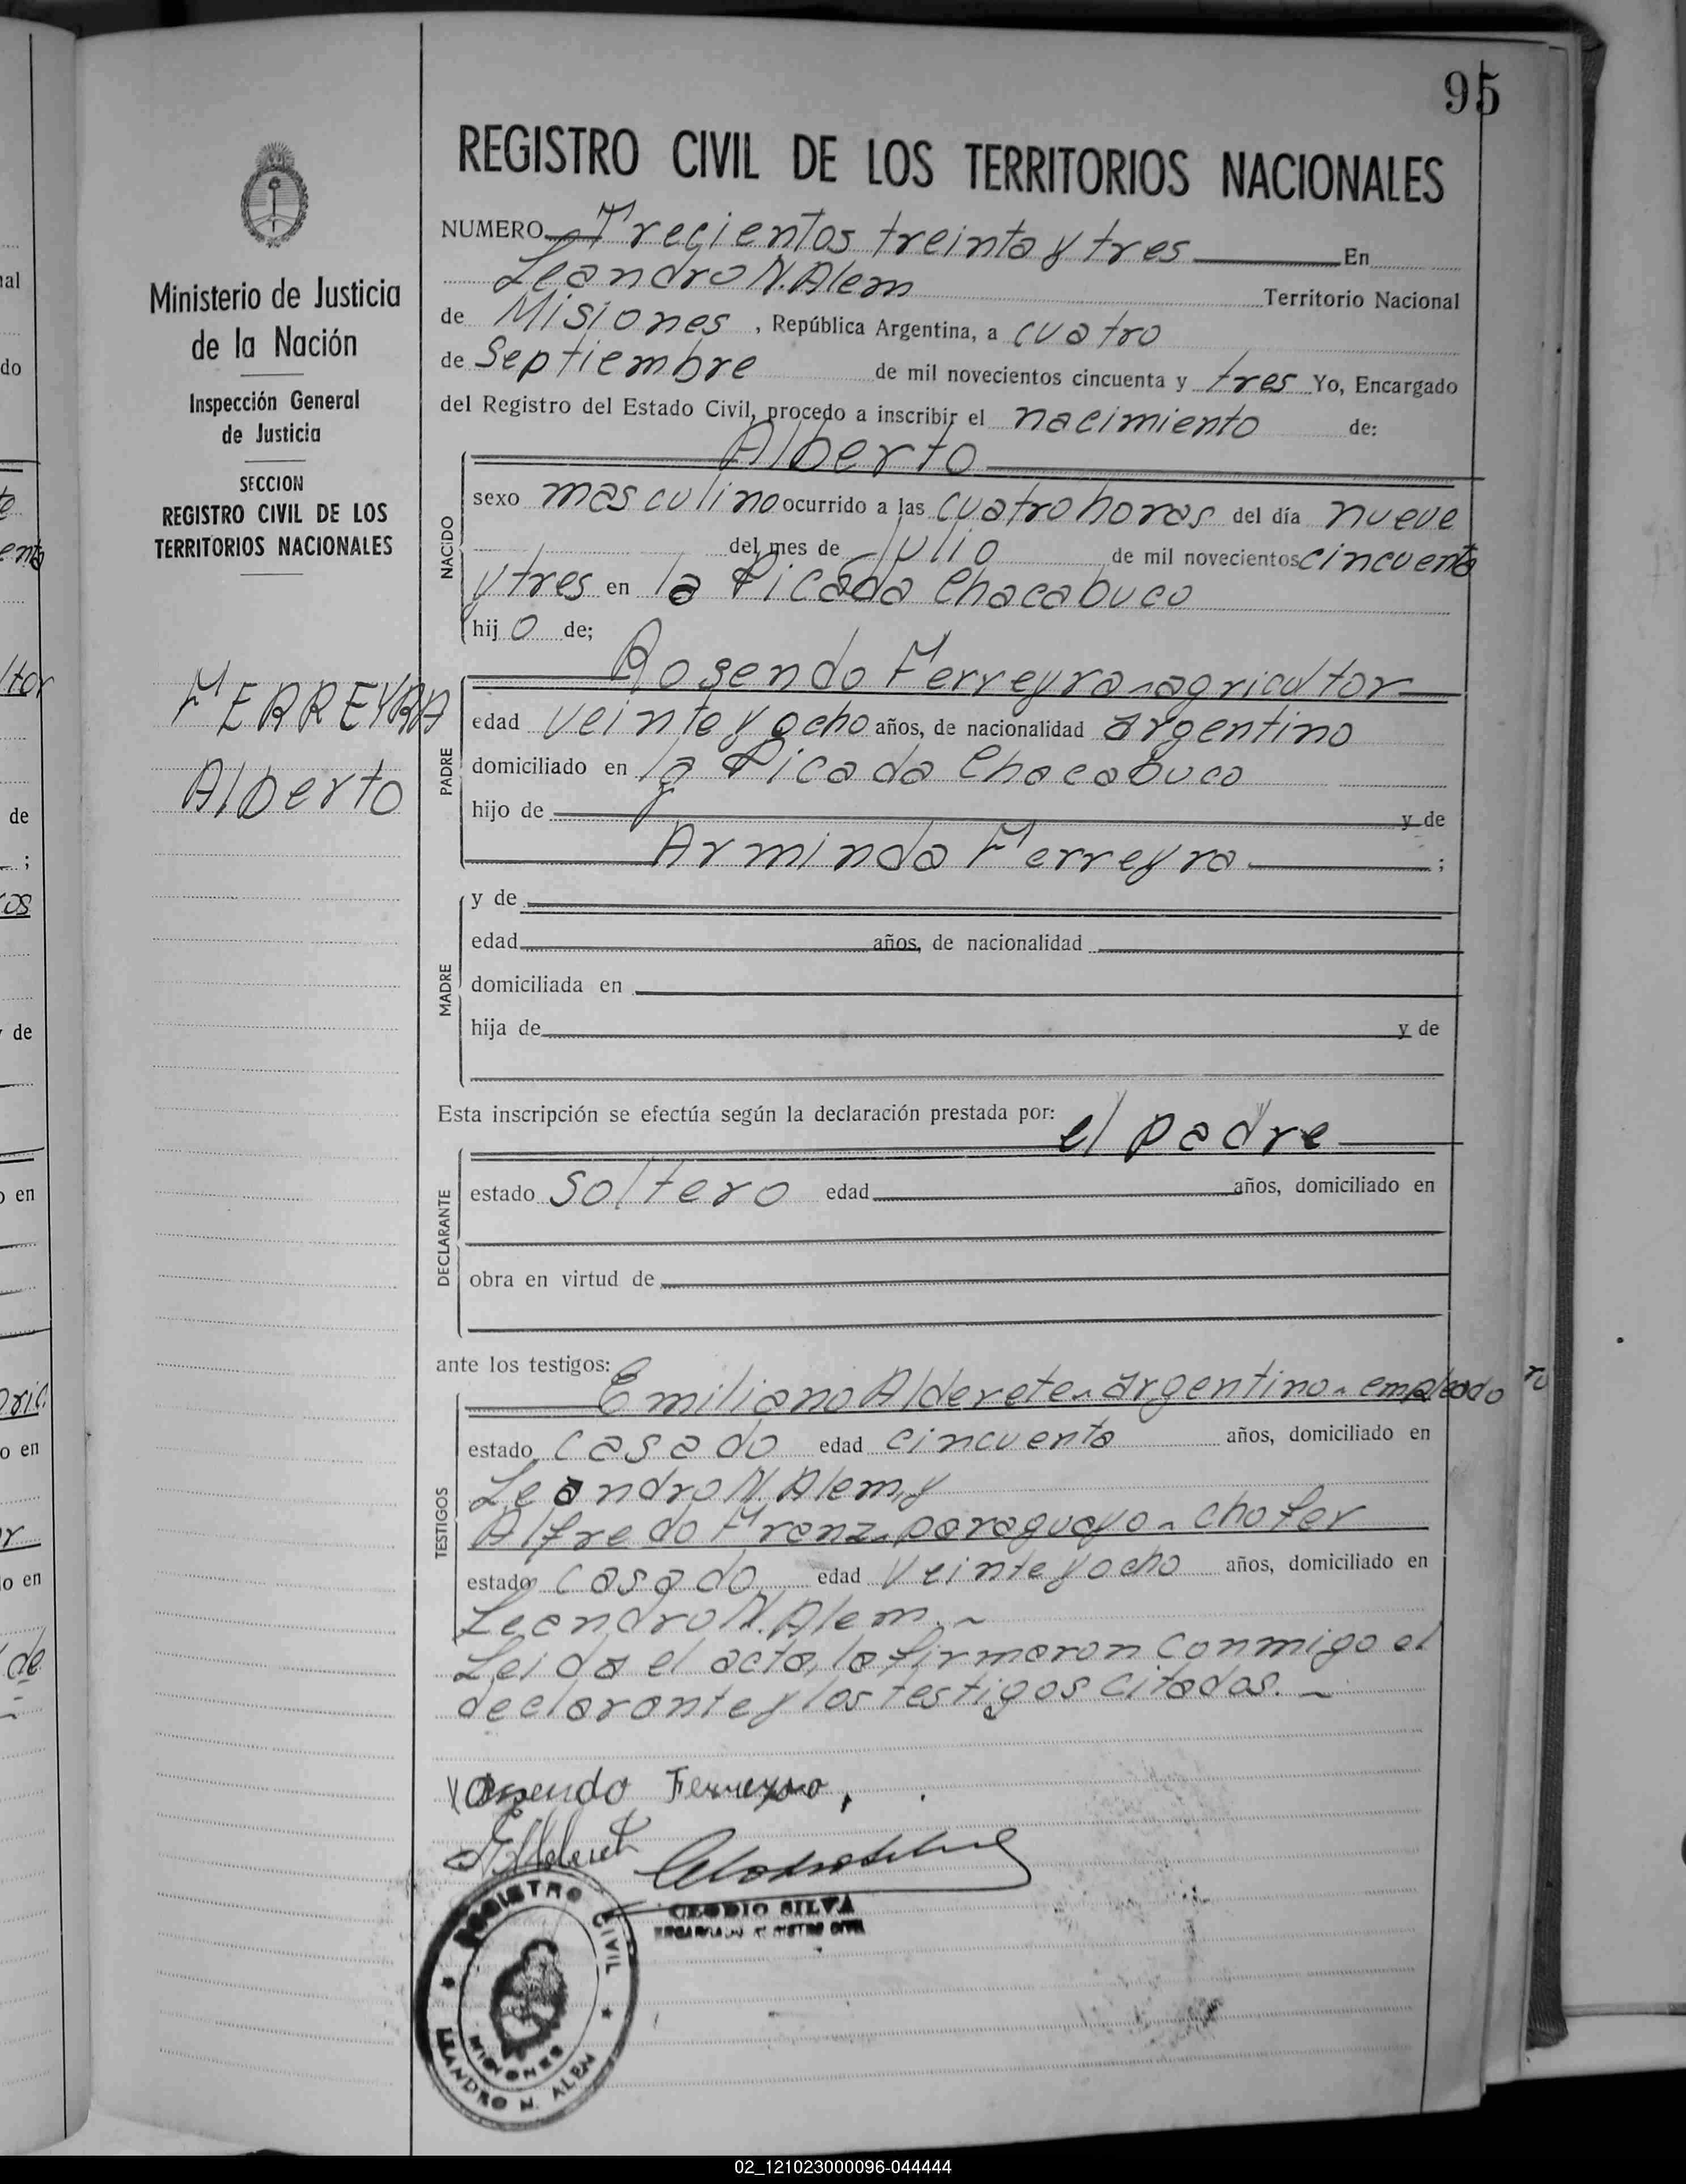 95
REGISTRO CIVIL DE LOS TERRITORIOS NACIONALES
Ministerio de Justicia
de la Nación
Inspección General
de Justicia
SECCION
REGISTRO CIVIL DE LOS
TERRITORIOS NACIONALES
FERREYRA
Alberto
NUMERO Trecientos treinta y tres En
Leandro N. Alem Territorio Nacional
de Misiones, República Argentina, a cuatro
de Septiembre de mil novecientos cincuenta y tres Yo, Encargado
del Registro del Estado Civil, procedo a inscribir el nacimiento de:
Alberto
NACIDO
sexo masculino ocurrido a las cuatro horas del día nueve
del mes de Julio de mil novecientos cincuenta
y tres en la Picada Chacabuco
hijo de;
Rosendo Ferreyra - agricultor
PADRE
edad veinte y ocho años, de nacionalidad argentino
domiciliado en la Picada Chacabuco
hijo de y de
Arminda Ferreyra ;
MADRE
y de
edad años, de nacionalidad
domiciliada en
hija de y de
Esta inscripción se efectúa según la declaración prestada por:
el padre
DECLARANTE
estado Soltero edad años, domiciliado en
obra en virtud de
ante los testigos:
Emiliano Alderete - argentino - empleado
TESTIGOS
estado casado edad cincuenta años, domiciliado en
Leandro N. Alem, y
Alfredo Franz - paraguayo - chofer
estado casado edad veinte y ocho años, domiciliado en
Leandro N. Alem. -
Leida el acta, la firmaron conmigo el
declarante y los testigos citados. -
Rosendo Ferreyra
CLODIO SILVA
ENCARGADO REGISTRO CIVIL
REGISTRO CIVIL
MISIONES
LEANDRO N. ALEM
02_121023000096-044444